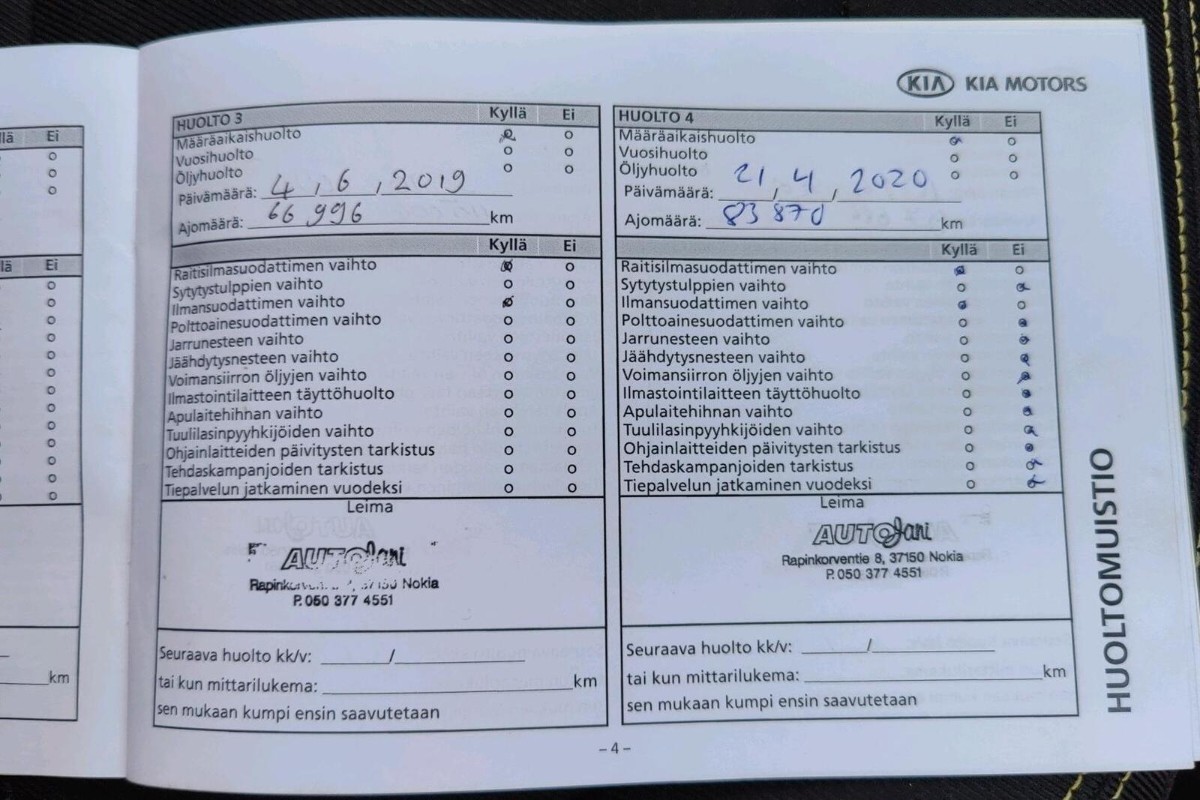 KIA KIA MOTORS
llä Ei
lä Ei
km
HUOLTO 3 Kyllä Ei
Määräaikaishuolto
Vuosihuolto
Öljyhuolto
Päivämäärä: 4, 6, 2019
Ajomäärä: 66 996 km
Kyllä Ei
Raitisilmasuodattimen vaihto
Sytytystulppien vaihto
Ilmansuodattimen vaihto
Polttoainesuodattimen vaihto
Jarrunesteen vaihto
Jäähdytysnesteen vaihto
Voimansiirron öljyjen vaihto
Ilmastointilaitteen täyttöhuolto
Apulaitehihnan vaihto
Tuulilasinpyyhkijöiden vaihto
Ohjainlaitteiden päivitysten tarkistus
Tehdaskampanjoiden tarkistus
Tiepalvelun jatkaminen vuodeksi
Leima
AUTOJani
37150 Nokia
P. 050 377 4551
Seuraava huolto kk/v: /
tai kun mittarilukema: km
sen mukaan kumpi ensin saavutetaan
HUOLTO 4 Kyllä Ei
Määräaikaishuolto
Vuosihuolto
Öljyhuolto
Päivämäärä: 21, 4, 2020
Ajomäärä: 83 870 km
Kyllä Ei
Raitisilmasuodattimen vaihto
Sytytystulppien vaihto
Ilmansuodattimen vaihto
Polttoainesuodattimen vaihto
Jarrunesteen vaihto
Jäähdytysnesteen vaihto
Voimansiirron öljyjen vaihto
Ilmastointilaitteen täyttöhuolto
Apulaitehihnan vaihto
Tuulilasinpyyhkijöiden vaihto
Ohjainlaitteiden päivitysten tarkistus
Tehdaskampanjoiden tarkistus
Tiepalvelun jatkaminen vuodeksi
Leima
AUTOJani
Rapinkorventie 8, 37150 Nokia
P. 050 377 4551
Seuraava huolto kk/v: /
tai kun mittarilukema: km
sen mukaan kumpi ensin saavutetaan
HUOLTOMUISTIO
– 4 –